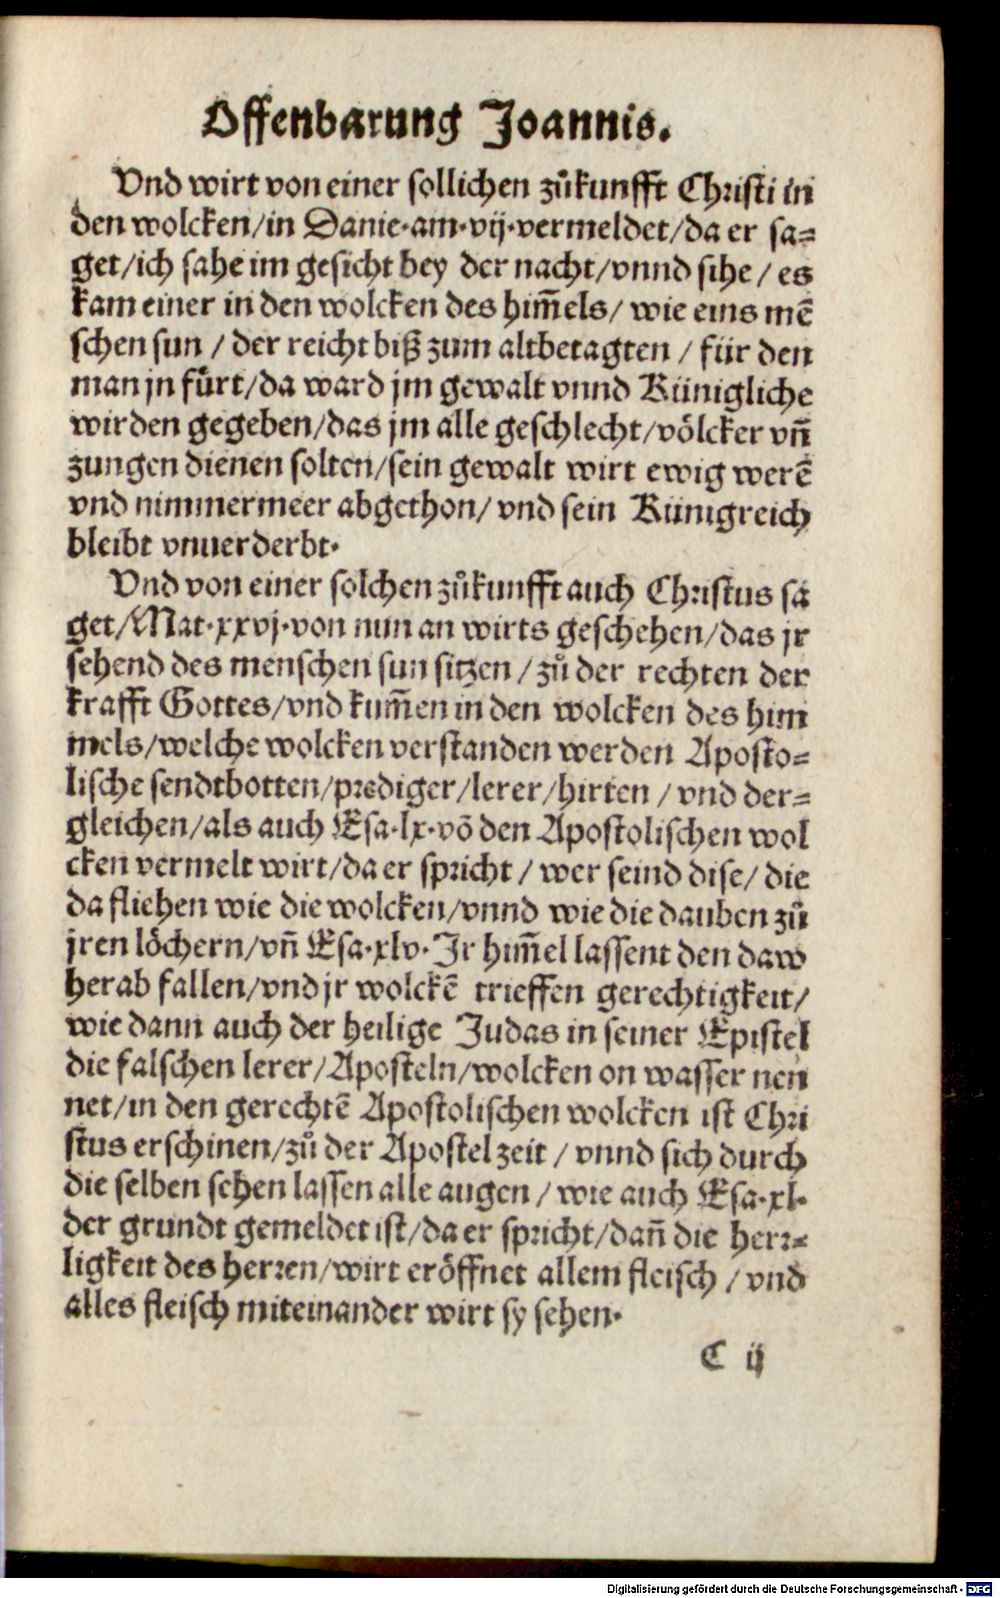 Offenbarung Joannis.
Vnd wirt von einer sollichen zůkunfft Christi in
den wolcken/in Danie·am·vij·vermeldet/da er sa=
get/ich sahe im gesicht bey der nacht/vnnd sihe/ es
kam einer in den wolcken des him̃els/ wie eins mẽ
schen sun / der reicht biß zum altbetagten / für den
man jn fůrt/da ward jm gewalt vnnd Künigliche
wirden gegeben/das jm alle geschlecht/völcker vñ
zungen dienen solten/sein gewalt wirt ewig werẽ
vnd nimmermeer abgethon/ vnd sein Künigreich
bleibt vnuerderbt·
Vnd von einer solchen zůkunfft auch Christus sa
get/Mat·xxvj·von nun an wirts geschehen/das jr
sehend des menschen sun sitzen /zů der rechten der
krafft Gottes/vnd kum̃en in den wolcken des him
mels/welche wolcken verstanden werden Aposto=
lische sendtbotten/prediger/lerer/hirten / vnd der=
gleichen/als auch Esa·lx·võ den Apostolischen wol
cken vermelt wirt/da er spricht / wer seind dise/ die
da fliehen wie die wolcken/vnnd wie die dauben zů
jren löchern/vñ Esa·xlv·Jr him̃el lassent den daw
herab fallen/vnd jr wolckẽ trieffen gerechtigkeit/
wie dann auch der heilige Judas in seiner Epistel
die falschen lerer/Aposteln/wolcken on wasser nen
net/in den gerechtẽ Apostolischen wolcken ist Chri
stus erschinen/zů der Apostel zeit / vnnd sich durch
die selben sehen lassen alle augen / wie auch Esa·xl·
der grundt gemeldet ist/da er spricht/dañ die herr=
ligkeit des herren/wirt eröffnet allem fleisch / vnd
alles fleisch miteinander wirt sy sehen·
C ij
Digitalisierung gefördert durch die Deutsche Forschungsgemeinschaft - DFG